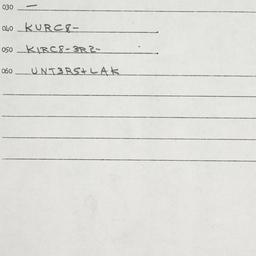 030 —
040 KURC8-
050 KIRC8-3R2-
060 UNT3R5+LAK